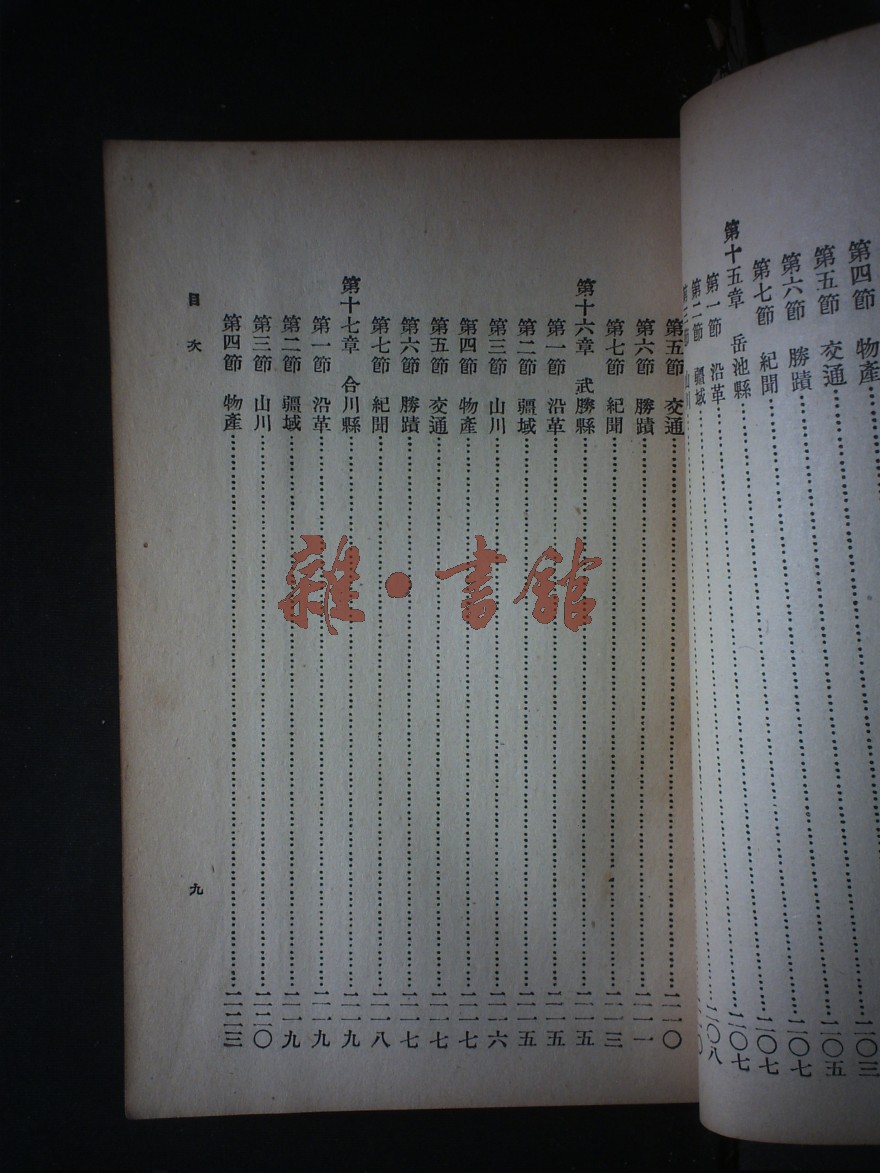 第四節 物產……二〇三
第五節 交通……二〇五
第六節 勝蹟……二〇七
第七節 紀聞……二〇七
第十五章 岳池縣……二〇七
第一節 沿革……二〇八
第二節 疆域
山川
第五節 交通……二一〇
第六節 勝蹟……二一一
第七節 紀聞……二一三
第十六章 武勝縣……二一五
第一節 沿革……二一五
第二節 疆域……二一五
第三節 山川……二一六
第四節 物產……二一七
第五節 交通……二一七
第六節 勝蹟……二一七
第七節 紀聞……二一八
第十七章 合川縣……二一九
第一節 沿革……二一九
第二節 疆域……二一九
第三節 山川……二二〇
第四節 物產……二二三
目次
九
雜·書館